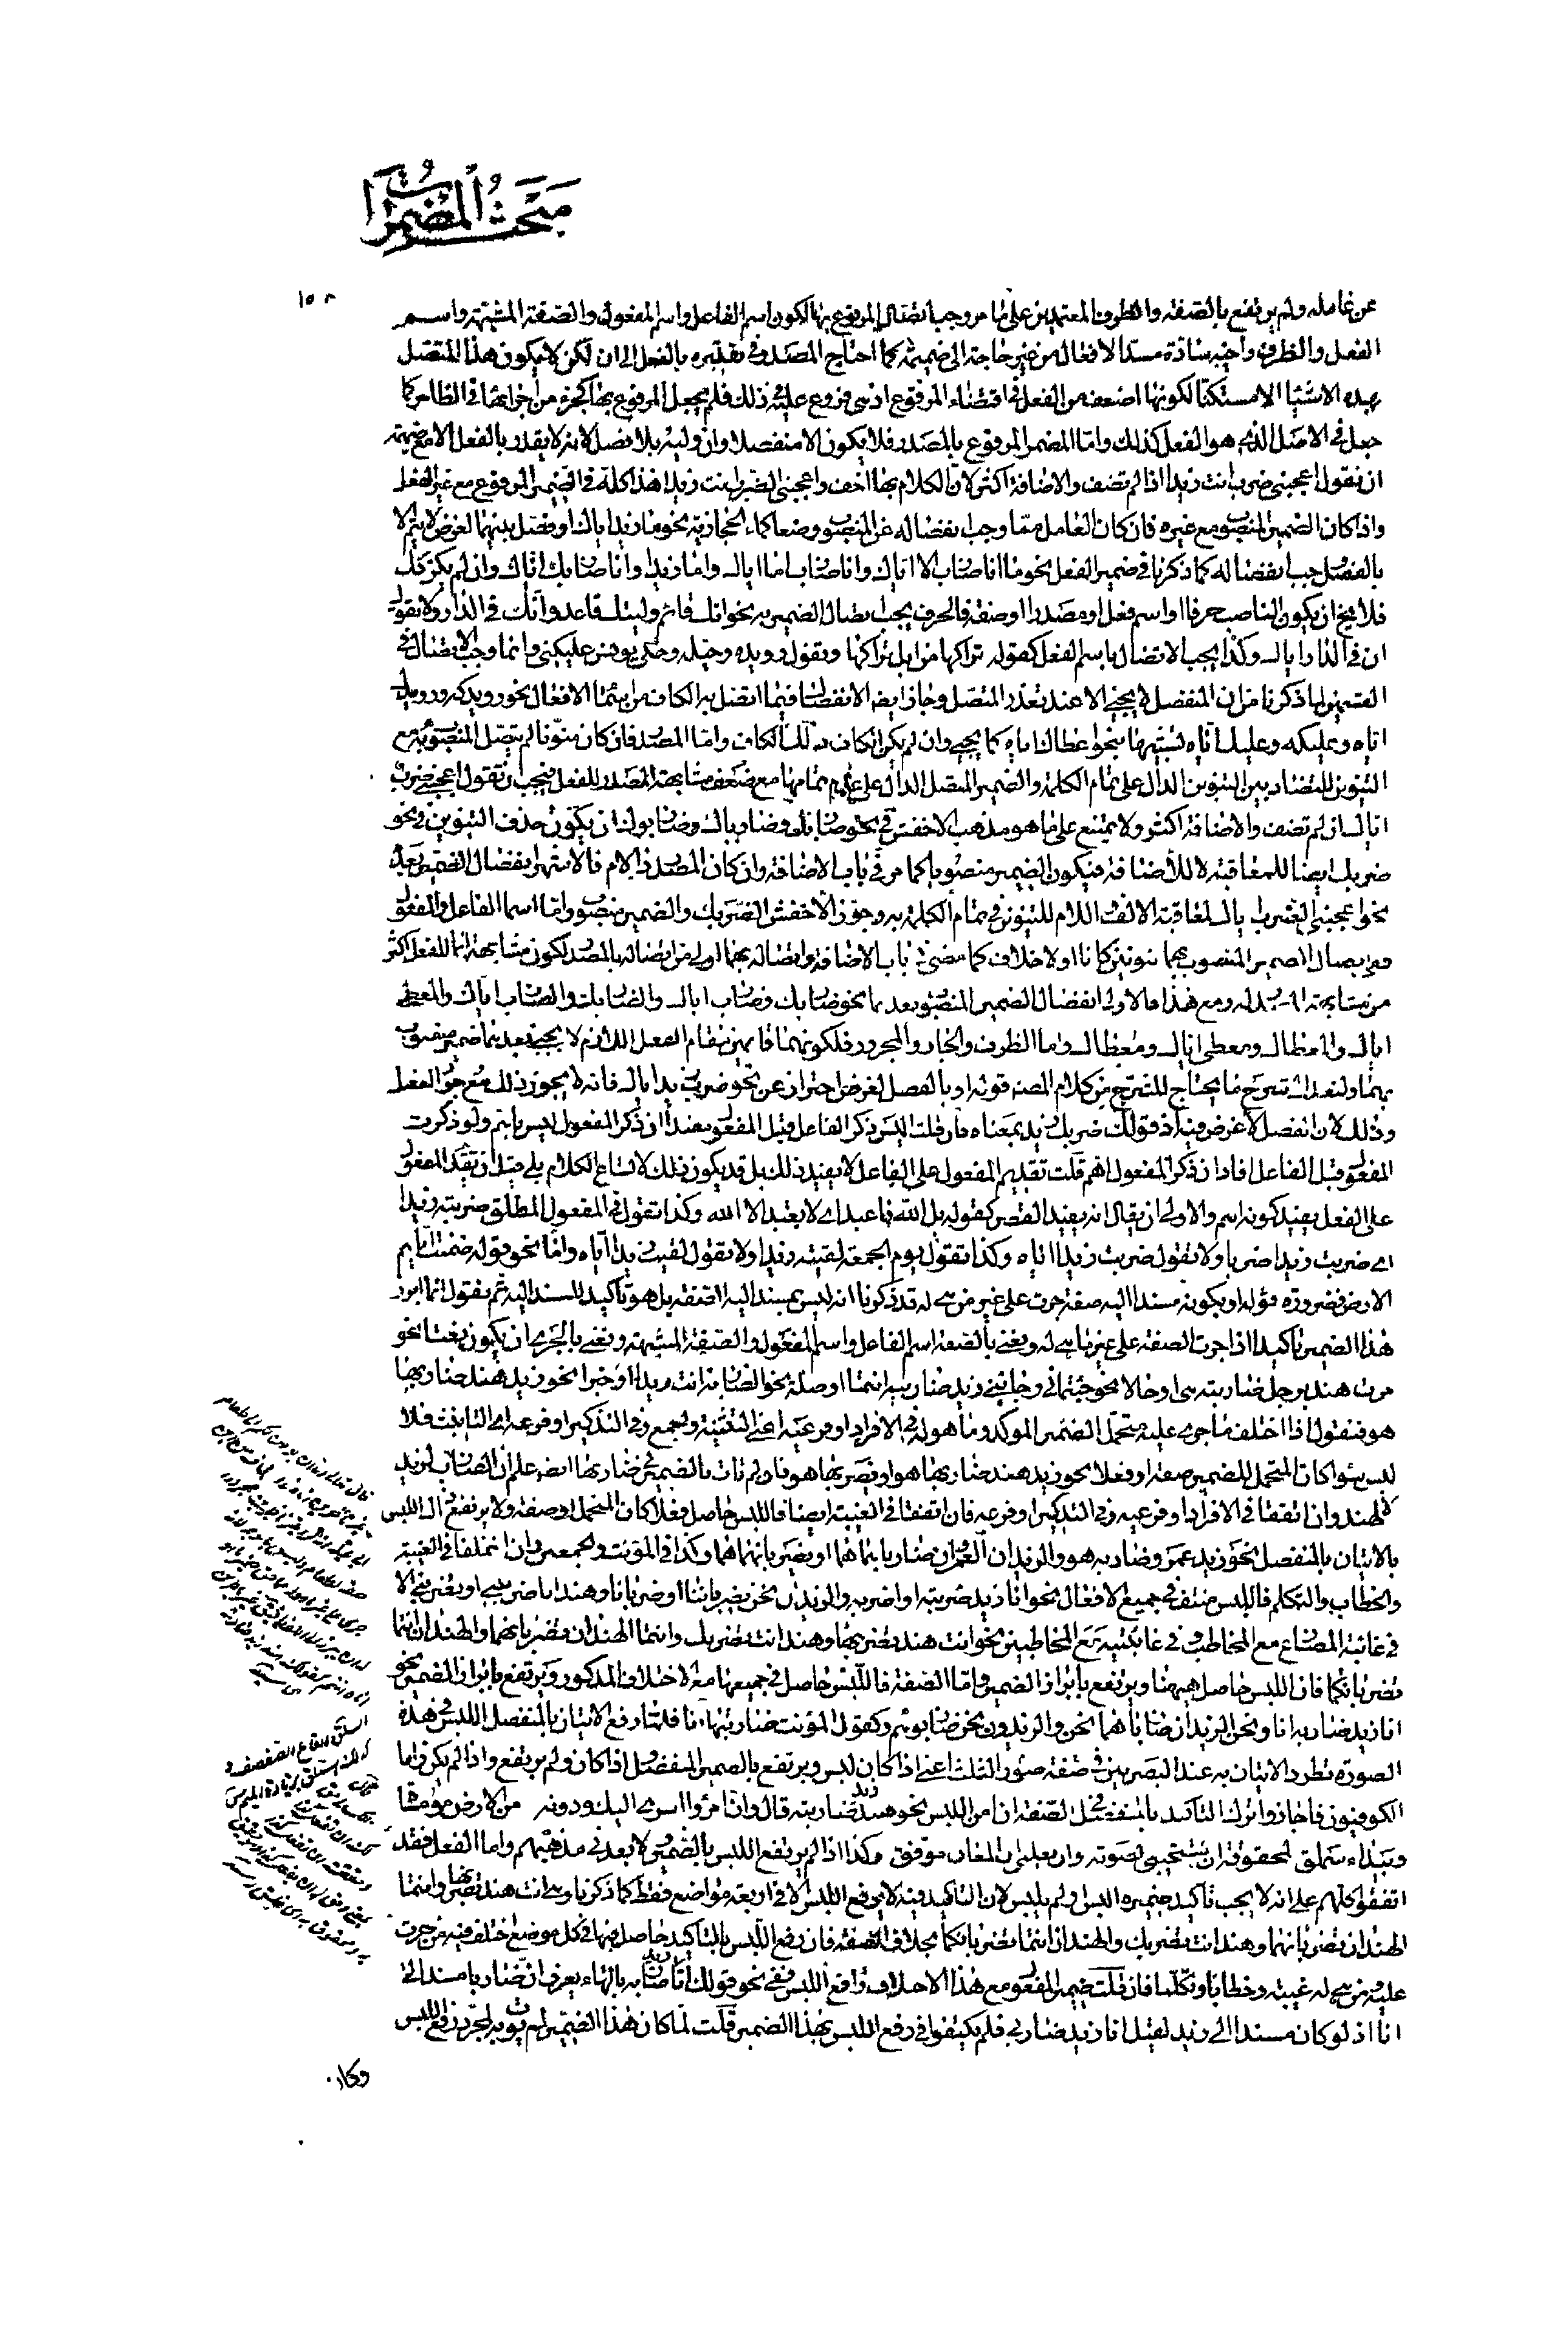 مبحث المضمرات
١٥٣
عن عامله ولم يرتفع بالصفة والظروف المعتمدين على ما مر وجب اتصال المرفوع بها لكون اسم الفاعل واسم المفعول والصفة المشبهة واسم
الفعل والظرف وأخيه سادة مسد الافعال من غير حاجة الى ضميمة كما احتاج المصدر في تقديره بالفعل الى ان لكن لا يكون هذا المتصل
بهذه الاشياء الا مستكنا لكونها اضعف من الفعل في اقتضاء المرفوع اذ هى فروع عليه في ذلك فلم يجعل المرفوع بها كجزء من اجزائها في الظاهر كما
جعل في الاصل الذى هو الفعل كذلك واما المضمر المرفوع بالمصدر فلا يكون الا منفصلا وان وليه بلا فصل لانه لا يقدر بالفعل الا مع ضميمة
ان تقول اعجبنى ضرب انت زيدا اذا لم تضف والاضافة اكثر لان الكلام بها اخف واعجبنى الضرب انت زيدا هذا كله في الضمير المرفوع مع غير الفعل
واذا كان الضمير المنصوب مع غيره فان كان العامل مما وجب انفصاله عن المنصوب وضعا كما الحجازية نحو ما زيد اياك او فصل بينهما لغرض لا يتم الا
بالفصل وجب انفصاله كما ذكرنا في ضمير الفعل نحو ما انا ضارب الا اياك وانا ضارب اما اياك واما زيدا وانا ضاربك اياك وان لم يكن كذلك
فلا يخ ان يكون الناصب حرفا او اسم فعل او مصدرا او صفة فالحرف يجب اتصال الضمير به نحو انك قائم وليتك قاعد وانك في الدار ولا تقول
ان في الدار اياك وكذا يجب الاتصال باسم الفعل كقوله تراكها من ابل تراكها وتقول رويده وحيهله وحكى يونس عليكنى وانما وجب الاتصال في
القسمين لما ذكرنا من ان المنفصل لا يجيء الا عند تعذر المتصل وجاز ايضا الانفصال فيما اتصل به الكاف من اسماء الافعال نحو رويدكه ورويدك
اياه وعليكه وعليك اياه تشبيها بنحو اعطاك اياه كما يجىء وان لم يكن الكاف كتلك الكاف واما المصدر فان كان منونا لم يتصل المنصوب به مع
التنوين للتضاد بين التنوين الدال على تمام الكلمة والضمير المتصل الدال على عدم تمامها مع ضعف مشابهة المصدر للفعل فيجب ان تقول اعجبنى ضرب
اياك ان لم تضف والاضافة اكثر ولا يمتنع على ما هو مذهب الاخفش في نحو ضاربك وضارباك وضاربوك ان يكون حذف التنوين في نحو
ضربك ايضا للمعاقبة لا للأضافة فيكون الضمير منصوبا كما مر في باب الاضافة وان كان المصدر ذا لام فالاشهر انفصال الضمير بعده
نحو اعجبنى الضرب اياك لمعاقبة الالف واللام للتنوين في تمام الكلمة به وجوز الأخفش الضربك والضمير منصوب واما اسما الفاعل والمفعول
ففي اتصال الضمير المنصوب بهما منونين كانا او لا خلاف كما مضى في باب الاضافة واتصاله بهما اولى من اتصاله بالمصدر لكون مشابهتهما للفعل اكثر
من مشابهة المصدر له ومع هذا فالاولى انفصال الضمير المنصوب بعدهما نحو ضاربك وضارب اياك والضاربك والضارب اياك والمعطى
اياك وانا معطاك ومعطى اياك ومعطاك واما الظرف والجار والمجرور فلكونهما قائمين مقام الفعل اللازم لا يجىء بعدهما ضمير منصوب
بهما ولنعد الى شرح ما يحتاج للشرح من كلام المصنف قوله او بالفصل لغرض احتراز عن نحو ضرب زيد اياك فانه لا يجوز ذلك مع جوز الفصل
وذلك لان الفصل لا غرض فيه اذ قولك ضربك زيد بمعناه فان قلت اليس ذكر الفاعل قبل المفعول مفيدا ان ذكر المفعول ليس باهم ولو ذكرت
المفعول قبل الفاعل افاد ان ذكر المفعول اهم قلت تقديم المفعول على الفاعل لا يفيد ذلك بل قد يكون ذلك لاتساع الكلام بلى قيل ان تقدم المفعول
على الفعل يفيد كونه اهم والاولى ان يقال انه يفيد القصر كقوله بل الله فاعبد اى لا يعبد الا الله وكذا تقول في المفعول المطلق ضربته زيدا
اى ضربت زيدا ضربا ولا تقول ضربت زيدا اياه وكذا تقول يوم الجمعة لقيته زيدا ولا تقول لقيت زيدا اياه واما نحو قوله ضمنت اياهم
الارض فضرورة قوله او بكونه مسندا اليه صفة جرت على غير من هى له قد ذكرنا انه ليس بمسند اليه الصفة بل هو تأكيد للمسند اليه ثم نقول انما ابرز
هذا الضمير تأكيدا اذا جرت الصفة على غير ما هى له ونعنى بالصفة اسم الفاعل واسم المفعول والصفة المشبهة ونعنى بالجرى ان يكون نعتا نحو
مررت هند برجل ضاربته هى او حالا نحو جئتمانى وجاءنى زيد ضاربيه انتما او صلة نحو الضاربه انت زيد او خبرا نحو زيد هند ضاربها
هو فنقول اذا اختلف ما جرى عليه متحمل الضمير الموكد وما هو له في الافراد او فرعيه اعنى التثنية والجمع وفي التذكير او فرعه اى التأنيث فلا
لبس سواء كان المتحمل للضمير صفة او فعلا نحو زيد هند ضاربها هو او يضربها هو فلو لم تأت بالضمير في ضاربها ايضا علم ان الضارب لزيد
لا لهند وان اتفقا في الافراد او فرعيه وفي التذكير او فرعه فان اتفقا في الغيبة ايضا فاللبس حاصل فعلا كان المتحمل او صفة ولا يرتفع ذلك اللبس
بالاتيان بالمنفصل نحو زيد عمرو ضاربه هو والزيدان العمران ضارباهما هما او يضربانهما هما وكذا في المؤنث والجمعين وان اختلفا في الغيبة
والخطاب والتكلم فاللبس منتف في جميع الافعال نحو انا زيد ضربته او اضربه والزيدان نحن يضرباننا او ضربانا وهند انا ضربتنى او تضربنى الا
في غائبة المضارع مع المخاطب وفي غائبتيه مع المخاطبين نحو انت هند تضربها وهند انت تضربك وانتما الهندان تضربانهما والهندان انتما
تضربانكما فان اللبس حاصل ههنا ويرتفع بابراز الضمير واما الصفة فاللبس حاصل في جميعها مع الاختلاف المذكور ويرتفع بابراز الضمير نحو
انا زيد ضاربه انا ونحن الزيدان ضارباهما نحن والزيدون نحن ضاربوهم وكقول المؤنث ضاربتها انا فلما رفع الاتيان بالمنفصل اللبس في هذه
الصورة تطرد الاتيان به عند البصريين في صفة صور الثلث اعنى اذا كان لبس ويرتفع بالضمير المنفصل اذا كان ولم يرتفع واذا لم يكن واما
الكوفيون فاجازوا ترك التأكيد بالمنفصل في الصفة ان امن اللبس نحو هند زيد ضاربته قال وان امرؤا اسرى اليك ودونه من الارض موماة
وبيداء سملق لمحقوقة ان تستجيبى لصوته وان تعلمى ان المعان موفق وكذا اذا لم يرتفع اللبس بالضمير لا بعد في مذهبهم واما الفعل فقد
اتفقوا كلهم على انه لا يجب تأكيد ضميره البس او لم يلبس لان التأكيد فيه لا يرفع اللبس الا في اربعة مواضع فقط كما ذكرنا وهى انت هند تضربها وانتما
الهندان تضربانهما وهند انت تضربك والهندان انتما تضربانكما بخلاف الصفة فان رفع اللبس بالتأكيد حاصل فيها في كل موضع اختلف فيه من جرت
عليه ومن هى له غيبة وخطابا وتكلما فان قلت ضمير المفعول مع هذا الاختلاف رافع اللبس ففى نحو قولك انا زيد ضاربه بالهاء يعرف ان ضاربا مسند الى
انا اذ لو كان مسندا الى زيد لقيل انا زيد ضاربى فلم يكتفوا في رفع اللبس بهذا الضمير قلت لما كان هذا الضمير لم يؤت به لمجرد رفع اللبس
وكان